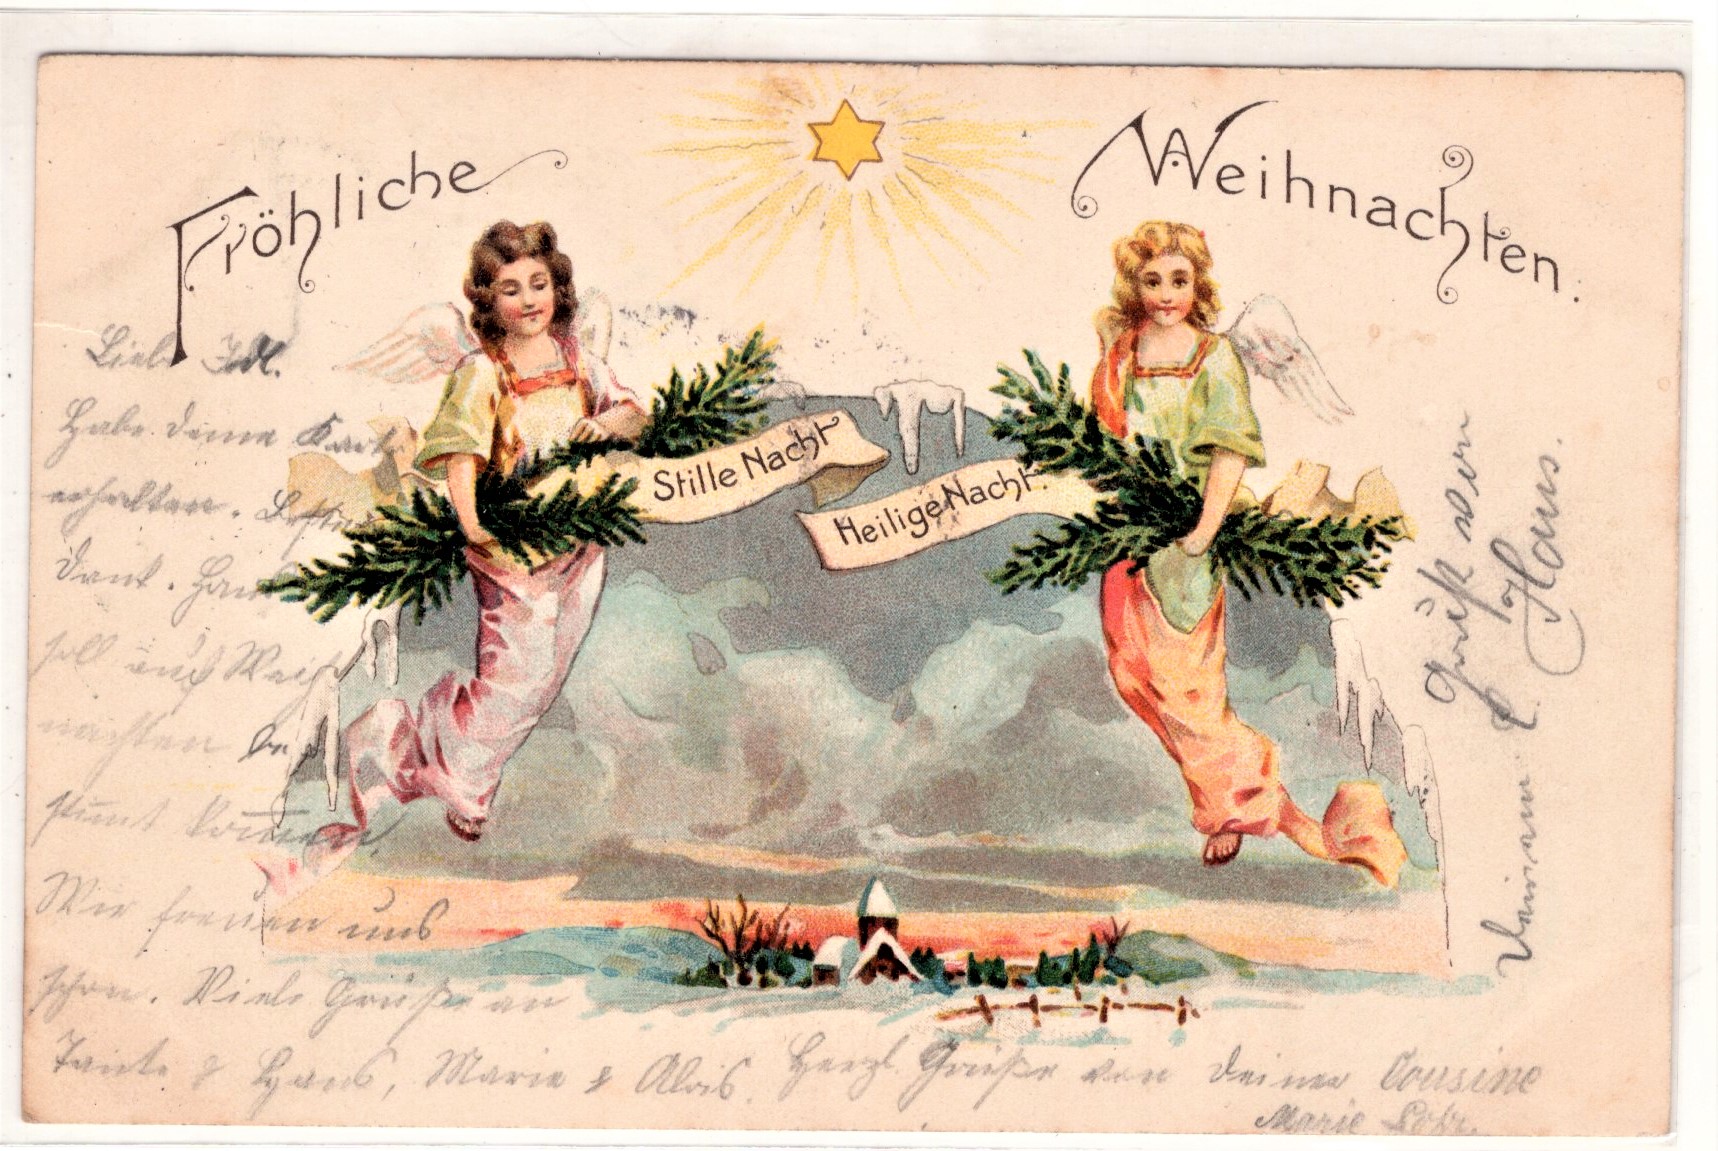 Fröhliche Weihnachten.
Stille Nacht
Heilige Nacht.
Liebe
Habe deine Karte
erhalten. Besten
Dank. Hans
soll auf Weih
nachten be
stimmt kommen.
Wir freuen uns
schon. Viele Grüße an
Tante & Hans, Marie & Alois. Herzl Grüße von deiner Cousine
Marie
Gruß von
Hans.